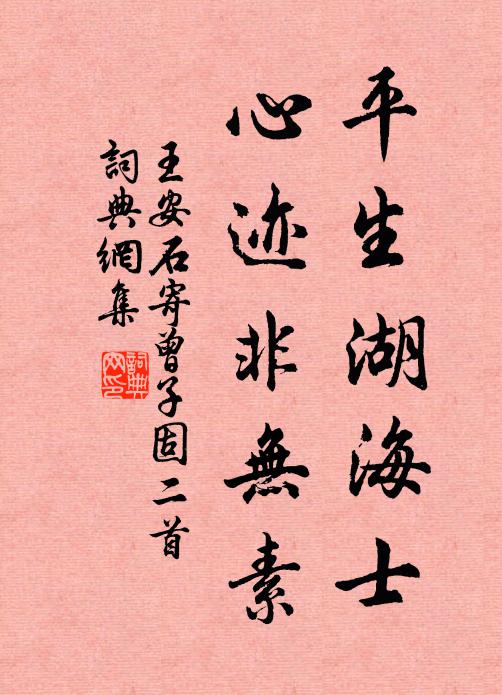 平生湖海士
心迹非無素
王安石寄曾子固二首
詞典網集
詞典網印